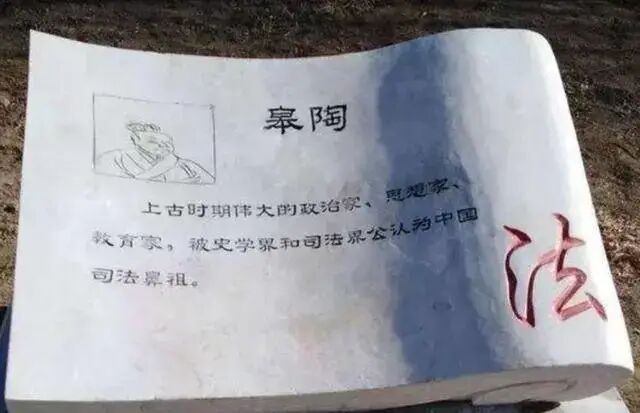 皋陶
上古时期伟大的政治家、思想家、
教育家，被史学界和司法界公认为中国
司法鼻祖。
法